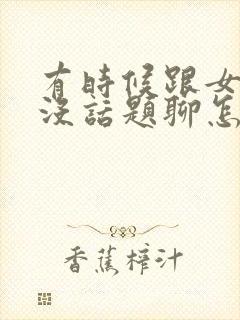 有時候跟女
沒話題聊怎
香蕉榨汁